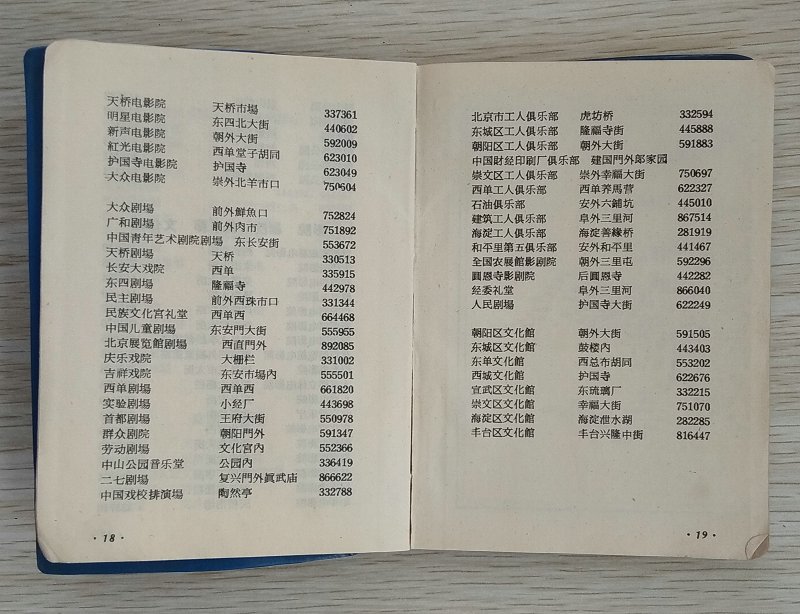 天桥电影院 天桥市場 337361
明星电影院 东四北大街 440602
新声电影院 朝外大街 592009
紅光电影院 西单堂子胡同 623010
护国寺电影院 护国寺 623049
大众电影院 崇外北羊市口 750604
大众剧場 前外鮮魚口 752824
广和剧場 前外肉市 751892
中国青年艺术剧院剧場 东长安街 553672
天桥剧場 天桥 330513
长安大戏院 西单 335915
东四剧場 隆福寺 442978
民主剧場 前外西珠市口 331344
民族文化宮礼堂 西单西 664468
中国儿童剧場 东安門大街 555955
北京展览館剧場 西直門外 892085
庆乐戏院 大栅栏 331002
吉祥戏院 东安市場內 555501
西单剧場 西单西 661820
实验剧場 小经厂 443698
首都剧場 王府大街 550978
群众剧院 朝阳門外 591347
劳动剧場 文化宮內 552366
中山公园音乐堂 公园內 336419
二七剧場 复兴門外眞武庙 866622
中国戏校排演場 陶然亭 332788
·18·
北京市工人俱乐部 虎坊桥 332594
东城区工人俱乐部 隆福寺街 445888
朝阳区工人俱乐部 朝外大街 591883
中国财经印刷厂俱乐部 建国門外郞家园
崇文区工人俱乐部 崇外幸福大街 750697
西单工人俱乐部 西单养馬营 622327
石油俱乐部 安外六鋪坑 445010
建筑工人俱乐部 阜外三里河 867514
海淀工人俱乐部 海淀善緣桥 281919
和平里第五俱乐部 安外和平里 441467
全国农展館影剧院 朝外三里屯 592296
圓恩寺影剧院 后圓恩寺 442282
经委礼堂 阜外三里河 866040
人民剧場 护国寺大街 622249
朝阳区文化館 朝外大街 591505
东城区文化館 鼓楼內 443403
东单文化館 西总布胡同 553202
西城文化館 护国寺 622676
宣武区文化館 东琉璃厂 332215
崇文区文化館 幸福大街 751070
海淀区文化館 海淀泄水湖 282285
丰台区文化館 丰台兴隆中街 816447
·19·